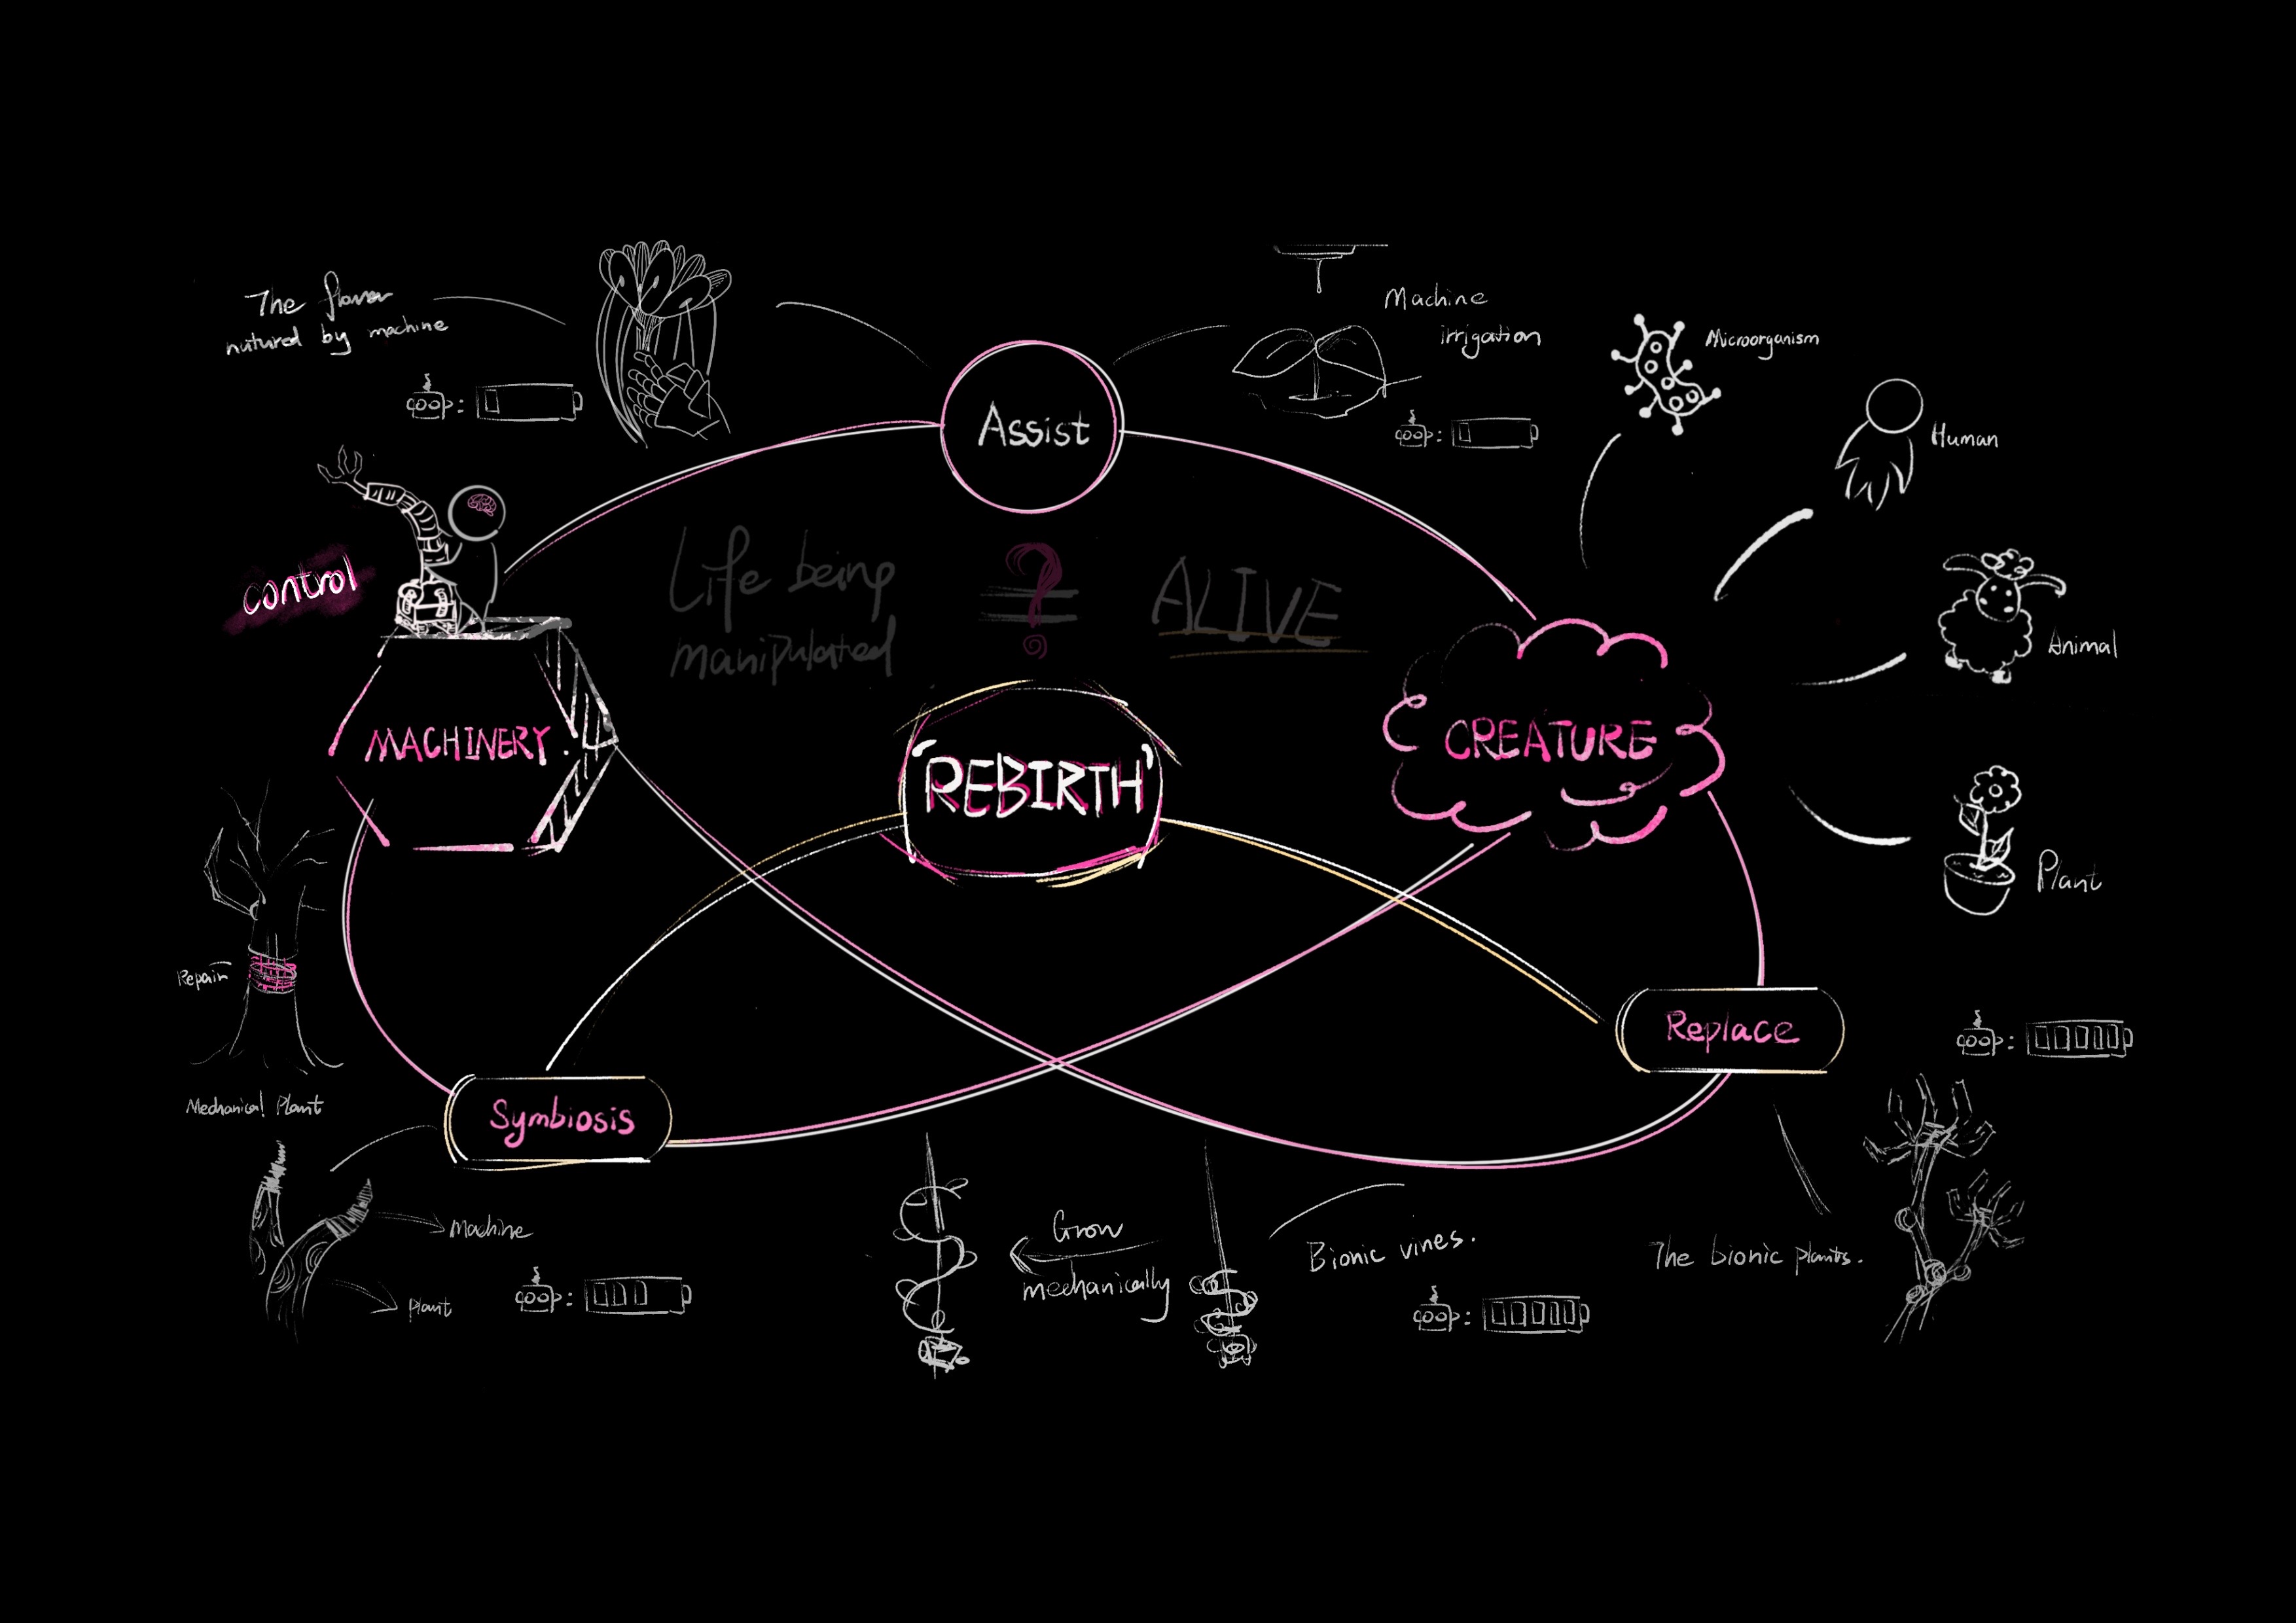 The flower
nutured by machine
Machine
irrigation
Microorganism
Human
Assist
control
Life being
manipulated
?
ALIVE
Animal
MACHINERY.
'REBIRTH'
CREATURE
Plant
Repair
Replace
Mechanical Plant
Symbiosis
Machine
Plant
Grow
mechanically
Bionic vines.
The bionic plants.